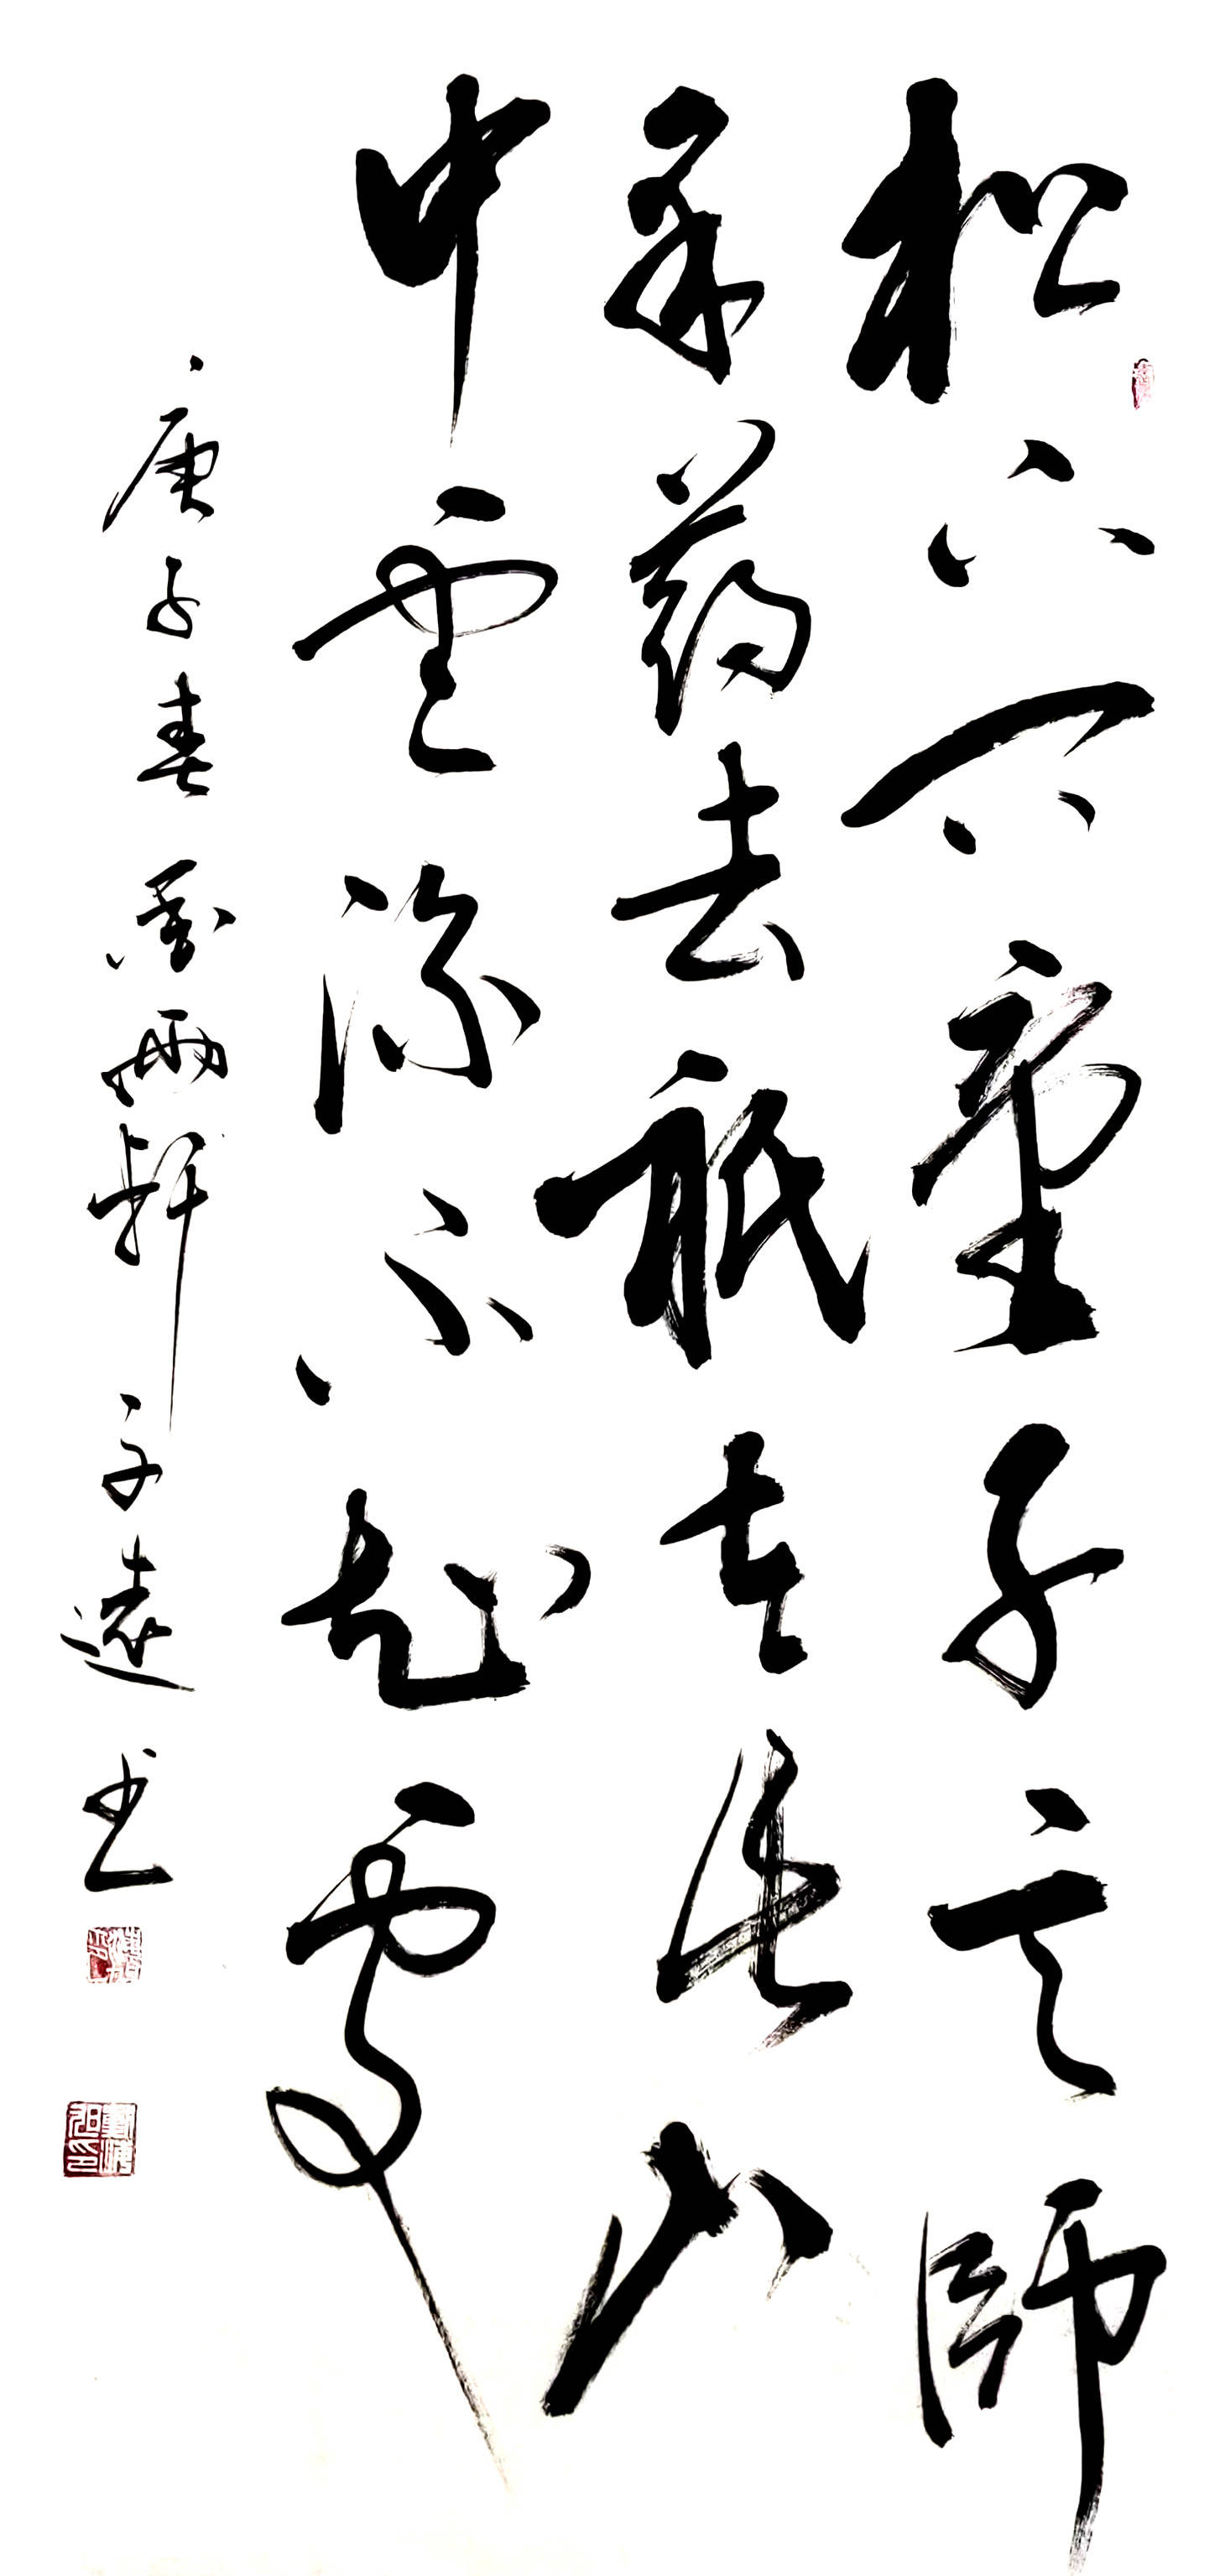 松下問童子言師
采葯去祇在此山
中雲深不知處
庚子春雨軒子遠书